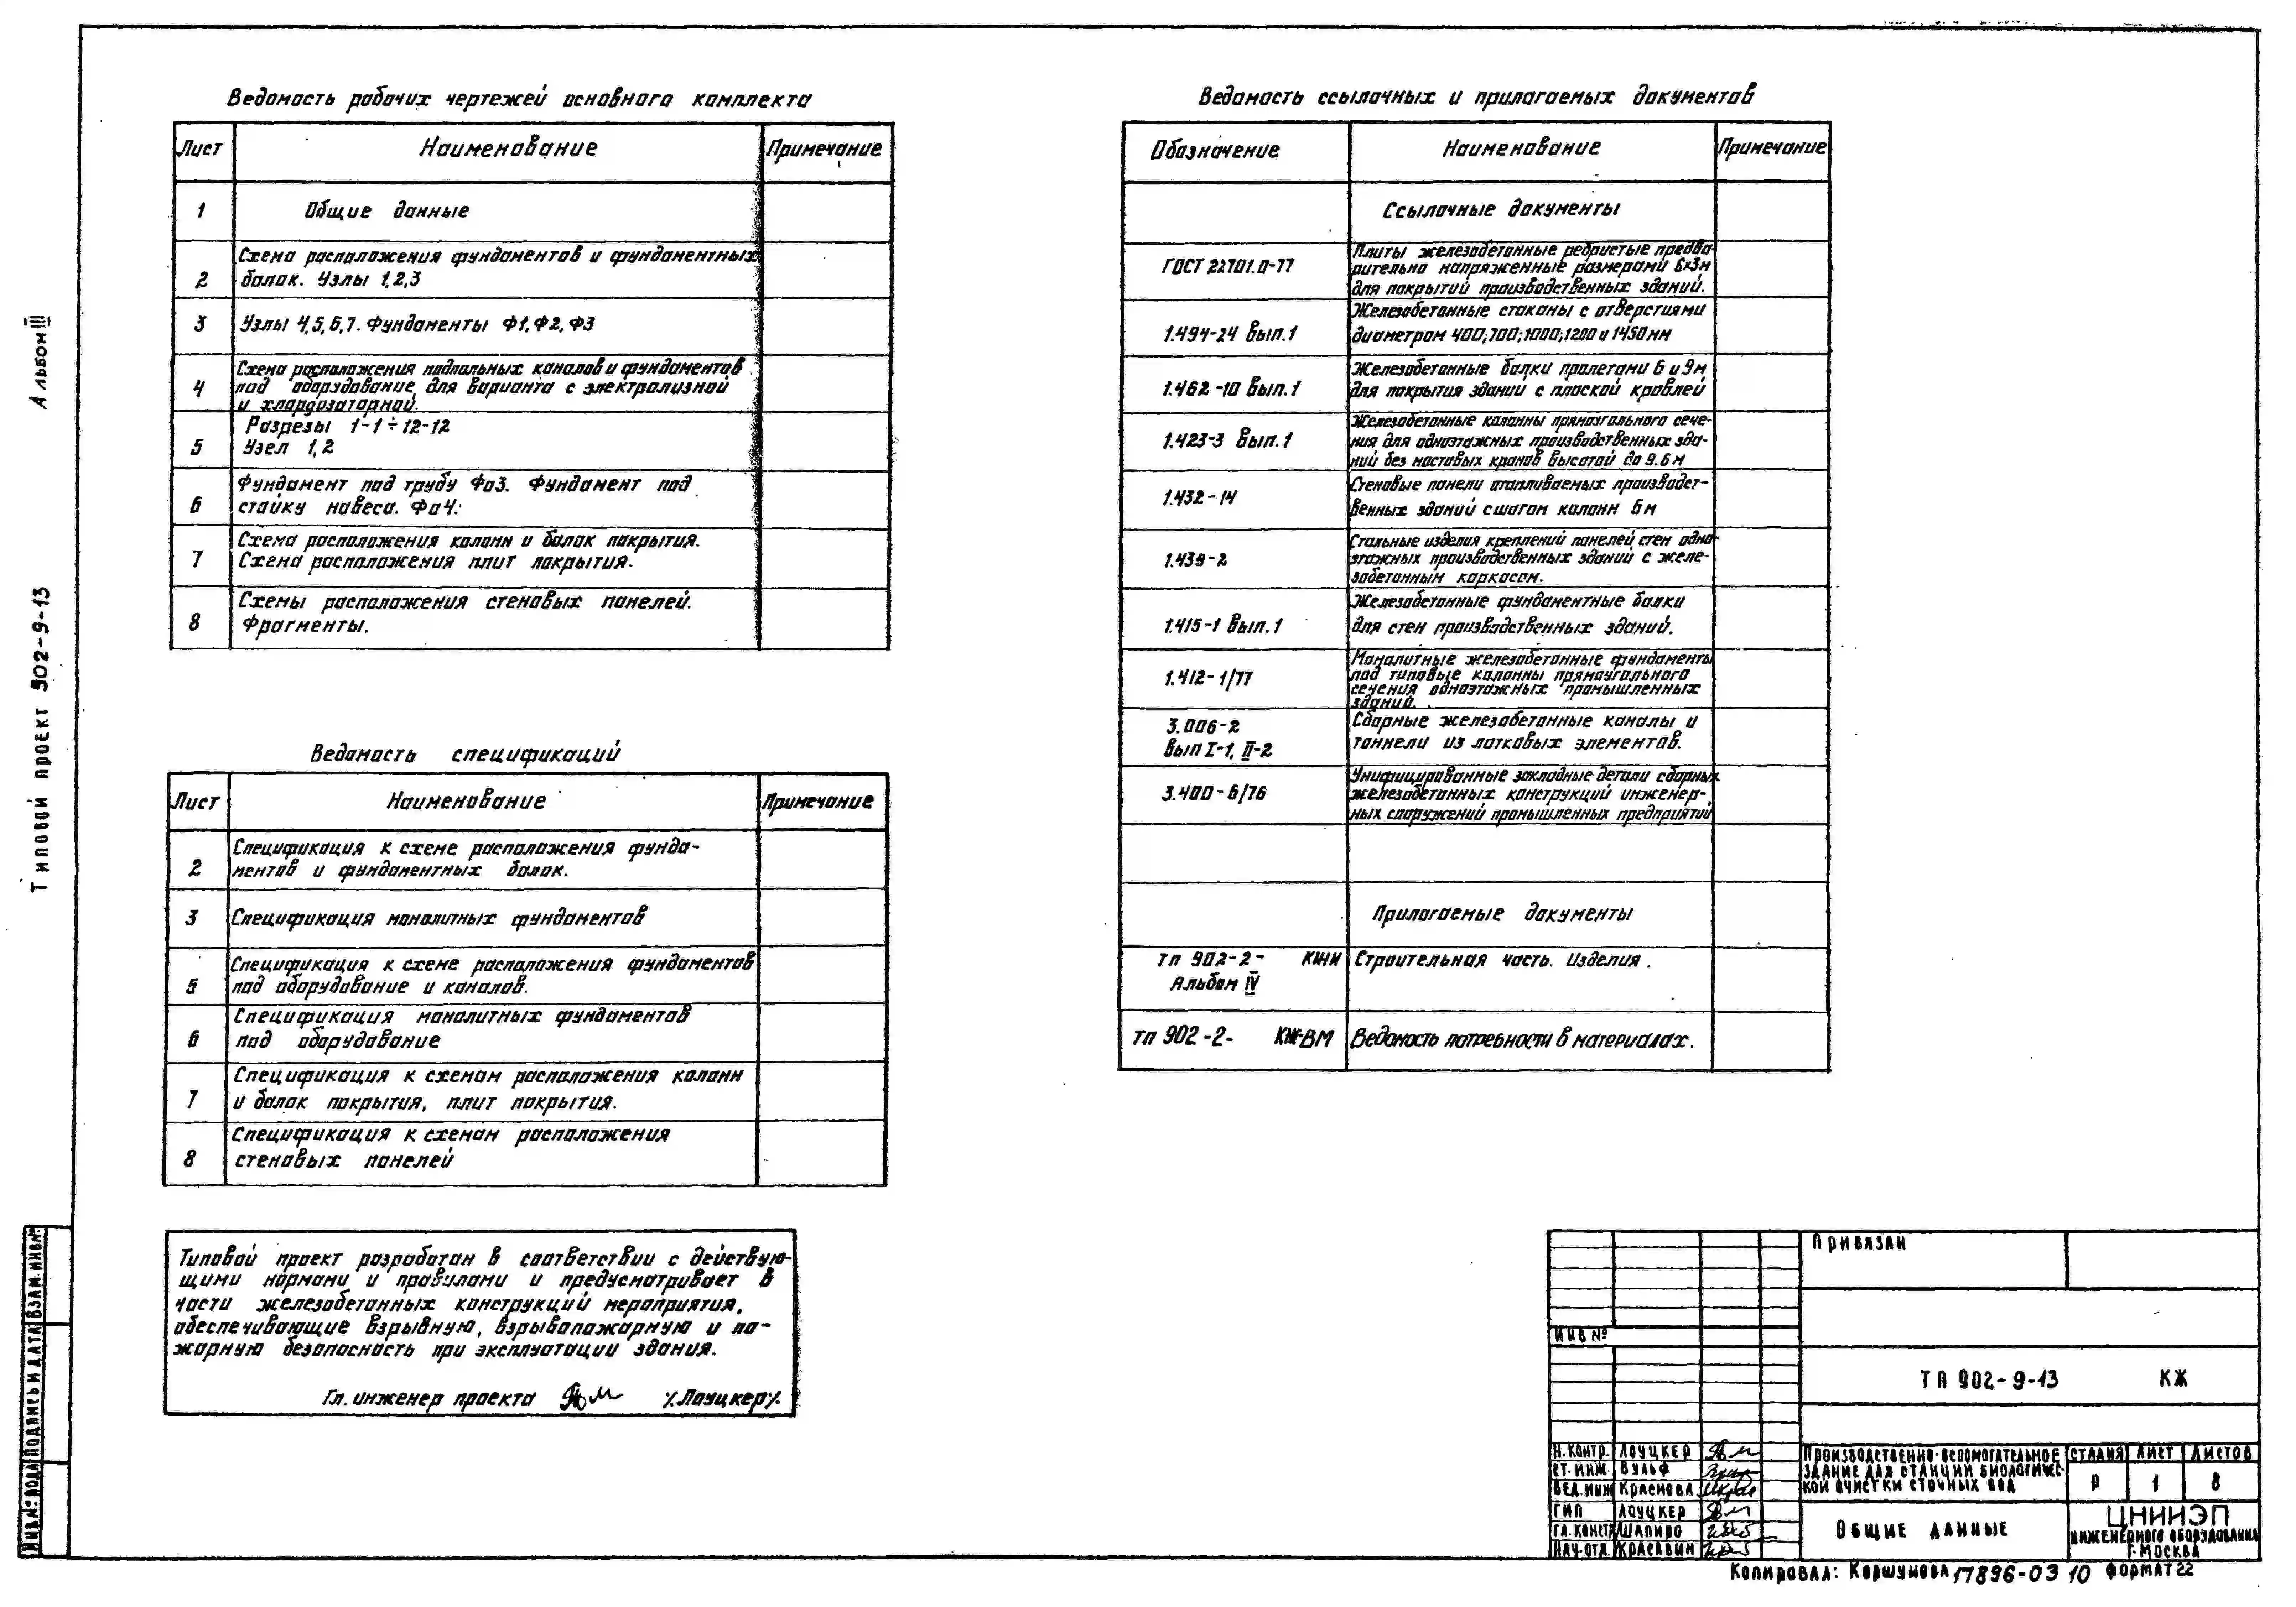 Альбом III
Типовой проект 902-9-13
Ведомость рабочих чертежей основного комплекта
Лист
Наименование
Примечание
1
Общие данные
2
Схема расположения фундаментов и фундаментных
балок. Узлы 1,2,3
3
Узлы 4,5,6,7. Фундаменты Ф1, Ф2, Ф3
4
Схема расположения подпольных каналов и фундаментов
под оборудование, для варианта с электролизной
и хлордозаторной.
5
Разрезы 1-1÷12-12
Узел 1,2
6
Фундамент под трубу Фо3. Фундамент под
стойку навеса. Фо4.
7
Схема расположения колонн и балок покрытия.
Схема расположения плит покрытия.
8
Схемы расположения стеновых панелей.
Фрагменты.
Ведомость спецификаций
Лист
Наименование
Примечание
2
Спецификация к схеме расположения фунда-
ментов и фундаментных балок.
3
Спецификация монолитных фундаментов
5
Спецификация к схеме расположения фундаментов
под оборудование и каналов.
6
Спецификация монолитных фундаментов
под оборудование
7
Спецификация к схемам расположения колонн
и балок покрытия, плит покрытия.
8
Спецификация к схемам расположения
стеновых панелей
Типовой проект разработан в соответствии с действую-
щими нормами и правилами и предусматривает в
части железобетонных конструкций мероприятия,
обеспечивающие взрывную, взрывопожарную и по-
жарную безопасность при эксплуатации здания.
Гл. инженер проекта ⁒Лоуцкер⁒
Ведомость ссылочных и прилагаемых документов
Обозначение
Наименование
Примечание
Ссылочные документы
ГОСТ 22701.0-77
Плиты железобетонные ребристые предва-
рительно напряженные размерами 6×3м
для покрытий производственных зданий.
1.494-24 Вып.1
Железобетонные стаканы с отверстиями
диаметром 400;700;1000;1200 и 1450мм
1.462-10 Вып.1
Железобетонные балки пролетами 6 и 9м
для покрытия зданий с плоской кровлей
1.423-3 Вып.1
Железобетонные колонны прямоугольного сече-
ния для одноэтажных производственных зда-
ний без мостовых кранов высотой до 9.6м
1.432-14
Стеновые панели отапливаемых производст-
венных зданий с шагом колонн 6м
1.439-2
Стальные изделия креплений панелей стен одно-
этажных производственных зданий с желе-
зобетонным каркасом.
1.415-1 Вып.1
Железобетонные фундаментные балки
для стен производственных зданий.
1.412-1/77
Монолитные железобетонные фундаменты
под типовые колонны прямоугольного
сечения одноэтажных промышленных
зданий.
3.006-2
Вып I-1, II-2
Сборные железобетонные каналы и
тоннели из лотковых элементов.
3.400-6/76
Унифицированные закладные детали сборных
железобетонных конструкций инженер-
ных сооружений промышленных предприятий
Прилагаемые документы
ТП 902-2- КЖИ
Альбом IV
Строительная часть. Изделия.
ТП 902-2- КЖ-ВМ
Ведомость потребности в материалах.
Инв.№ подл.
Подпись и дата
Взам. инв.№
Привязан
ИНВ №
ТП 902-9-13 КЖ
Н.контр. Лоуцкер
Ст. инж. Вульф
Вед.инж Краснова
ГИП Лоуцкер
Гл.констр Шапиро
Нач.отд. Красавин
Производственно-вспомогательное
здание для станции биологичес-
кой очистки сточных вод
Стадия Лист Листов
Р 1 8
Общие данные
ЦНИИЭП
инженерного оборудования
г. Москва
Копировал: Коршунова 17896-03 10 Формат 22